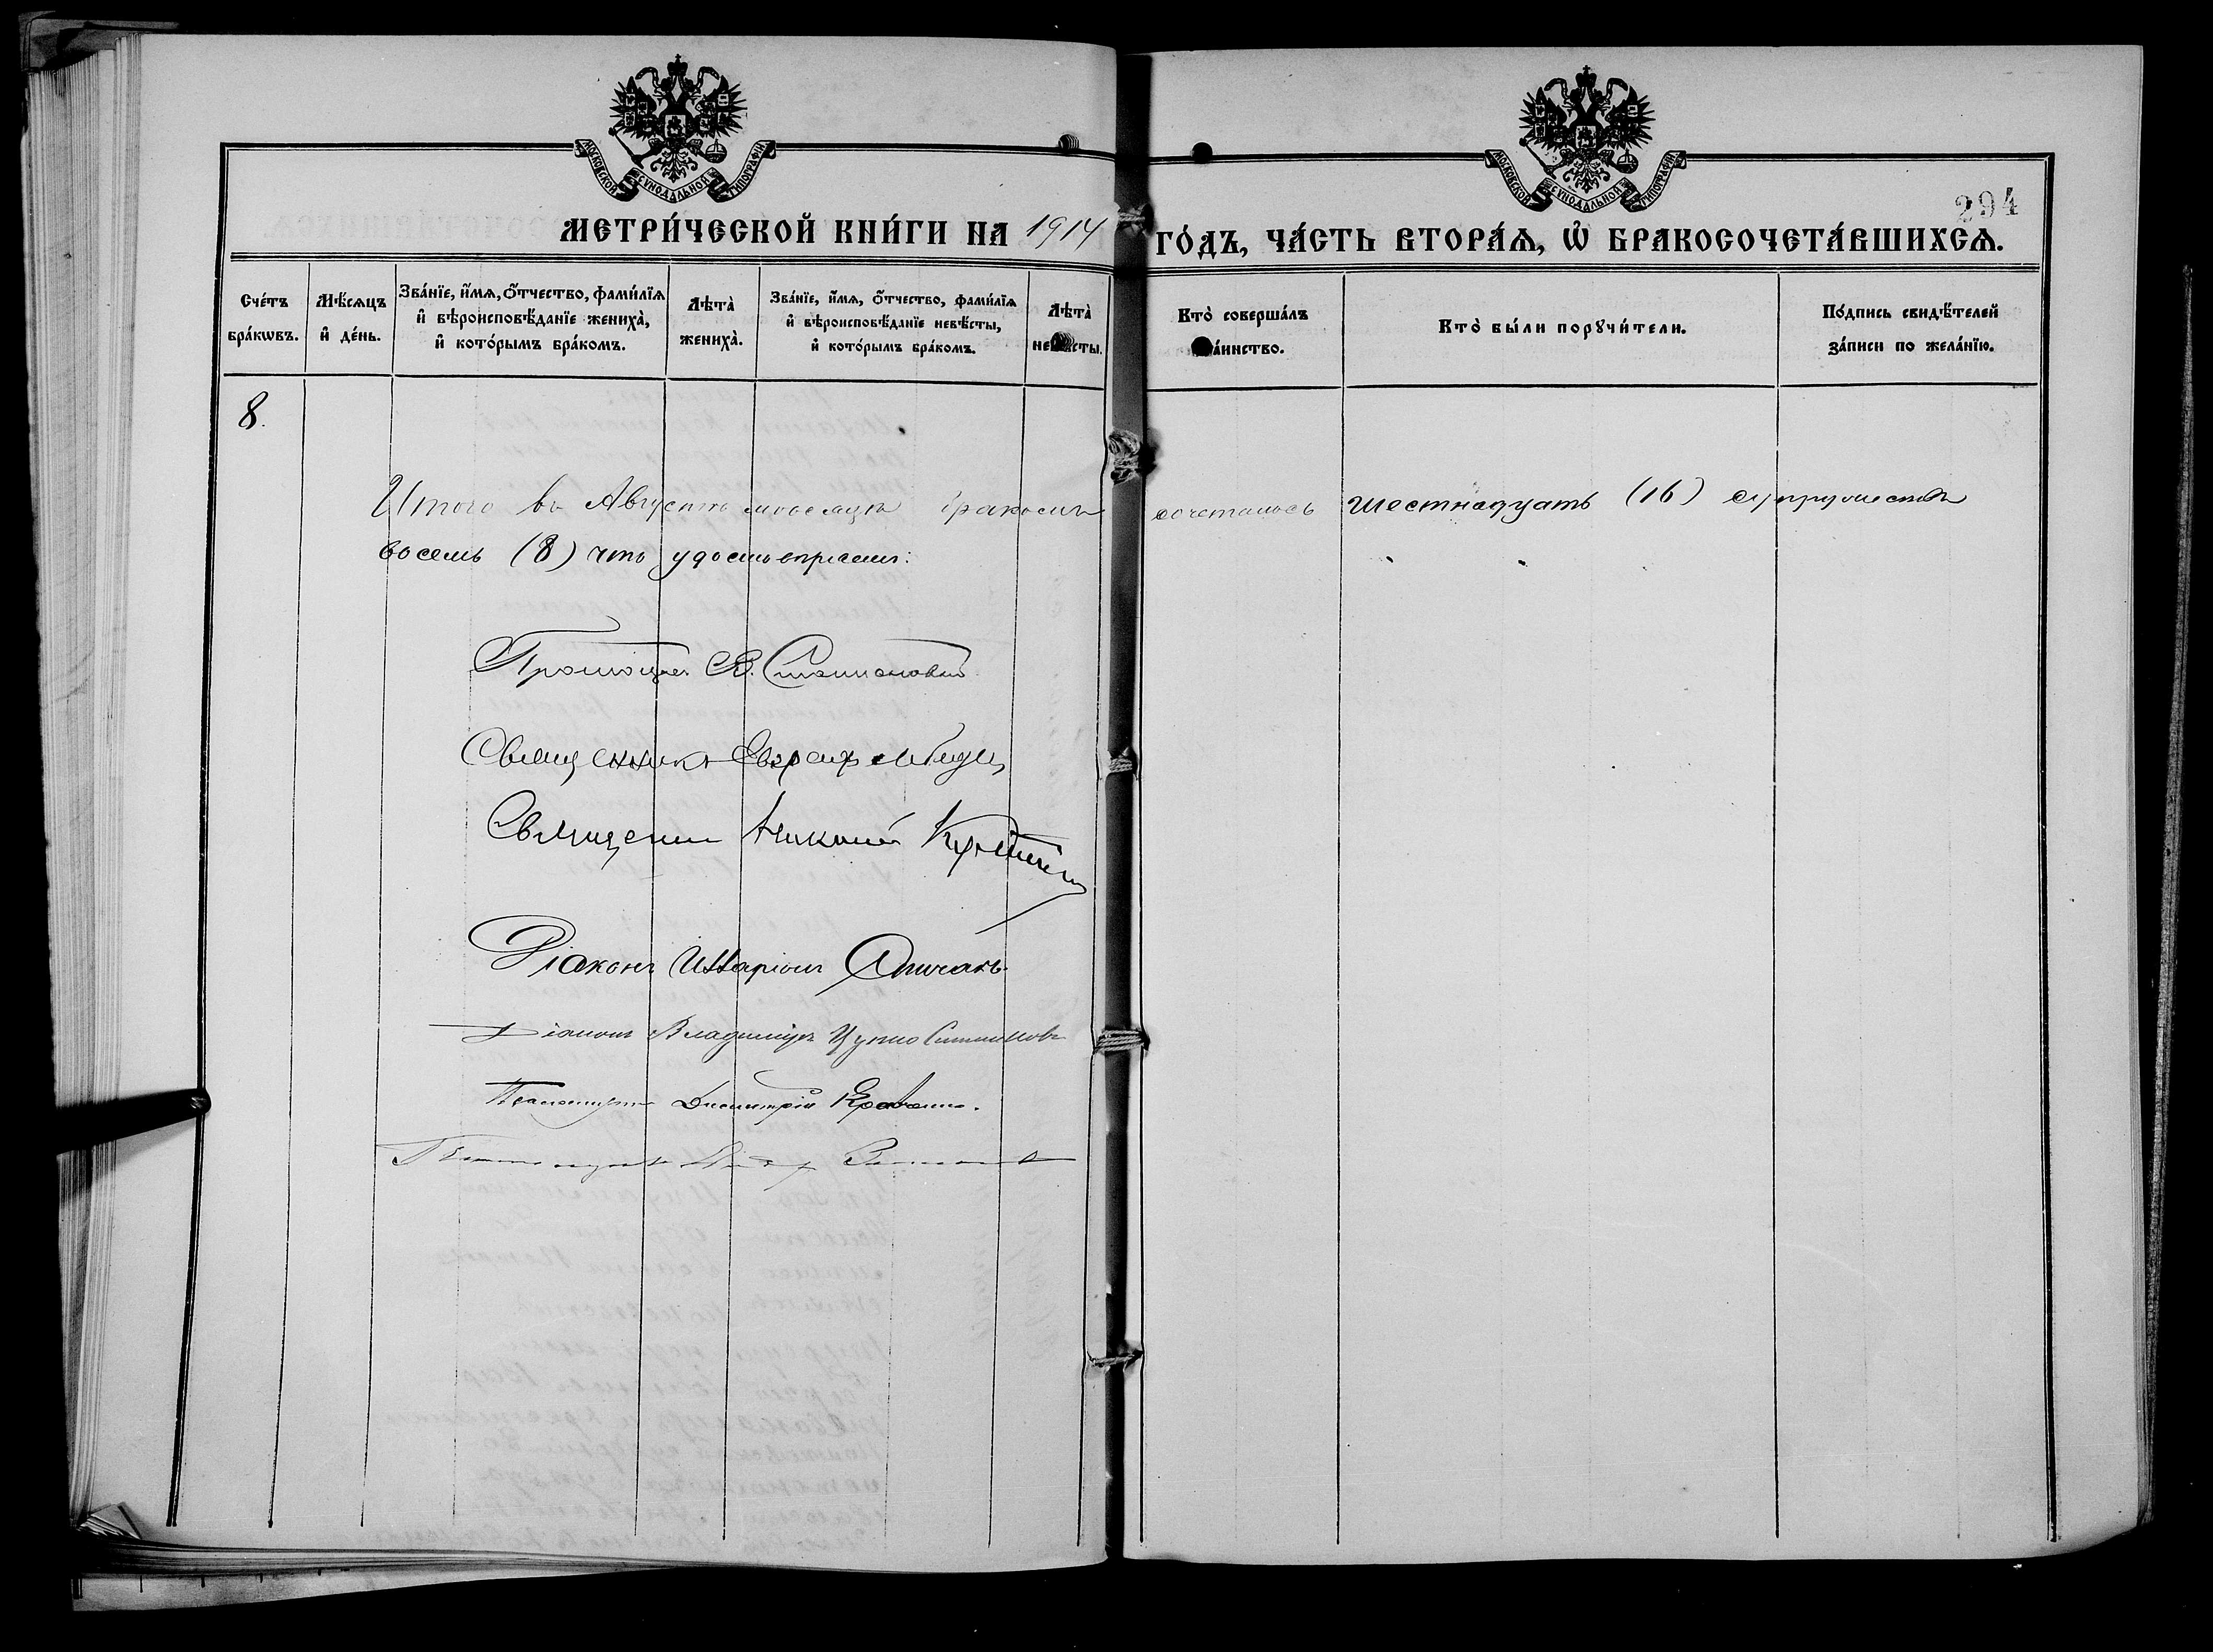 МОСКОВСКОЙ СѴНОДАЛЬНОЙ ТИПОГРАФІИ
МОСКОВСКОЙ СѴНОДАЛЬНОЙ ТИПОГРАФІИ
294
МЕТРИ́ЧЕСКОЙ КНИ́ГИ НА 1914 ГО́ДЪ, ЧА́СТЬ ВТОРА́Ѧ, Ѡ҆ БРАКОСОЧЕТА́ВШИХСѦ.
Сче́тъ
бра́кѡвъ.
Мѣ́сѧцъ
и҆ де́нь.
Зва́нїе, и҆́мѧ, ѻ҆́тчество, фами́лїѧ
и҆ вѣроисповѣ́данїе жениха̀,
и҆ кото́рымъ бра́комъ.
Лѣта̀
жениха̀.
Зва́нїе, и҆́мѧ, ѻ҆́тчество, фами́лїѧ
и҆ вѣроисповѣ́данїе невѣ́сты,
и҆ кото́рымъ бра́комъ.
Лѣта̀
невѣ́сты.
Кто̀ соверша́лъ
та́инство.
Кто̀ бы́ли порꙋчи́тели.
По́дпись свидѣ́телей
за́писи по жела́нїю.
8.
Итого въ Августѣ мѣсяцѣ бракомъ сочеталось шестнадцать (16) супружествъ
восемь (8) что удостовѣряемъ:
Протоіерей В.
Священникъ
Священникъ Николай
Діаконъ Илларіонъ Спичакъ
Діаконъ Владиміръ
Псаломщикъ Димитрій
Псаломщикъ